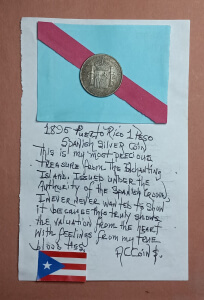 1895 Puerto Rico 1 Peso
Spanish Silver Coin
This is my most precious
treasure from The Enchanting
Island. Issued under the
Authority of the Spanish Crown,
I never never wanted to show
it because this truly shows
the valuation from the heart
with feelings from my true
blood
ACCoin $.